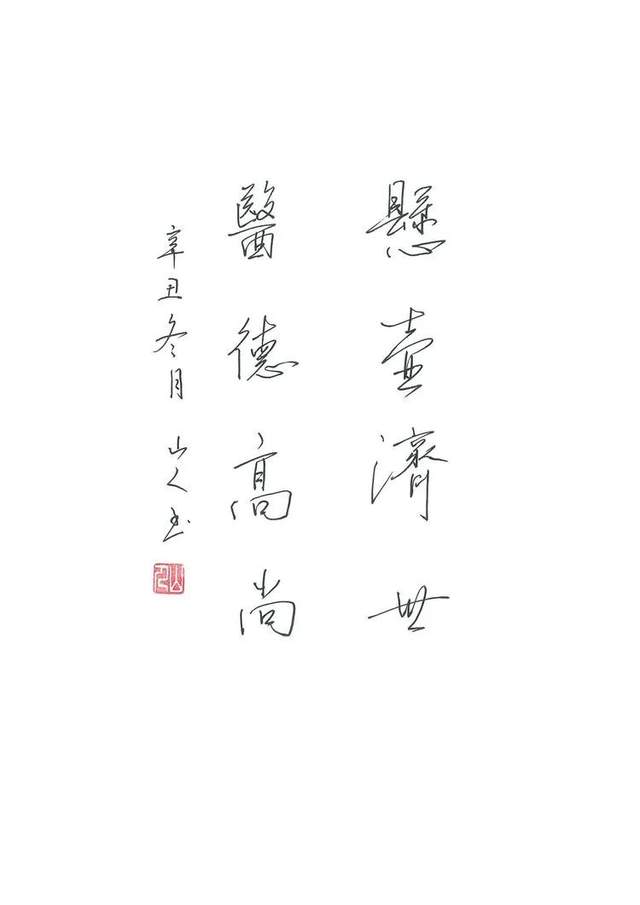 懸壺濟世
醫德高尚
辛丑冬月 山人书
山人